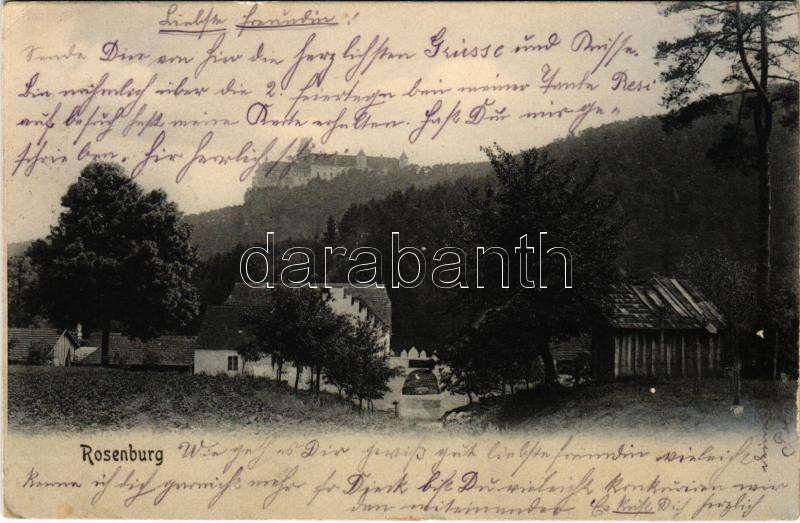 Liebste Freundin!
Sende Dir von hier die herzlichsten Grüsse und Küsse.
Bin nähmlich über die 2. Feiertage bei meiner Tante Resi
auf besuch hast meine Karte erhalten. Hast Du mir ge-
schrieben. Hir herrlich
darabanth
Rosenburg
Wie geh es Dir gewiß gut liebste freundin vieleicht
Kenne ich dich garnicht mehr so Dick bist Du vieleicht konkurieren wir
dan miteinander Es Küßt Dich herzlich